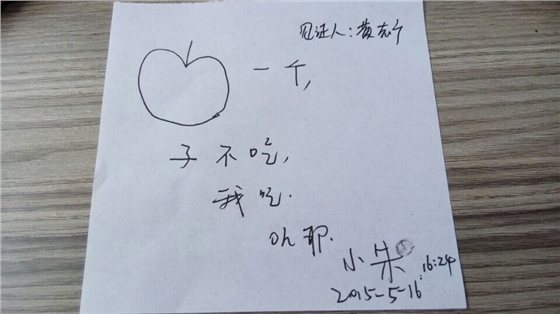 见证人:黄
一个,
子不吃,
我吃.
oh耶.
小朱
16:24
2015-5-16